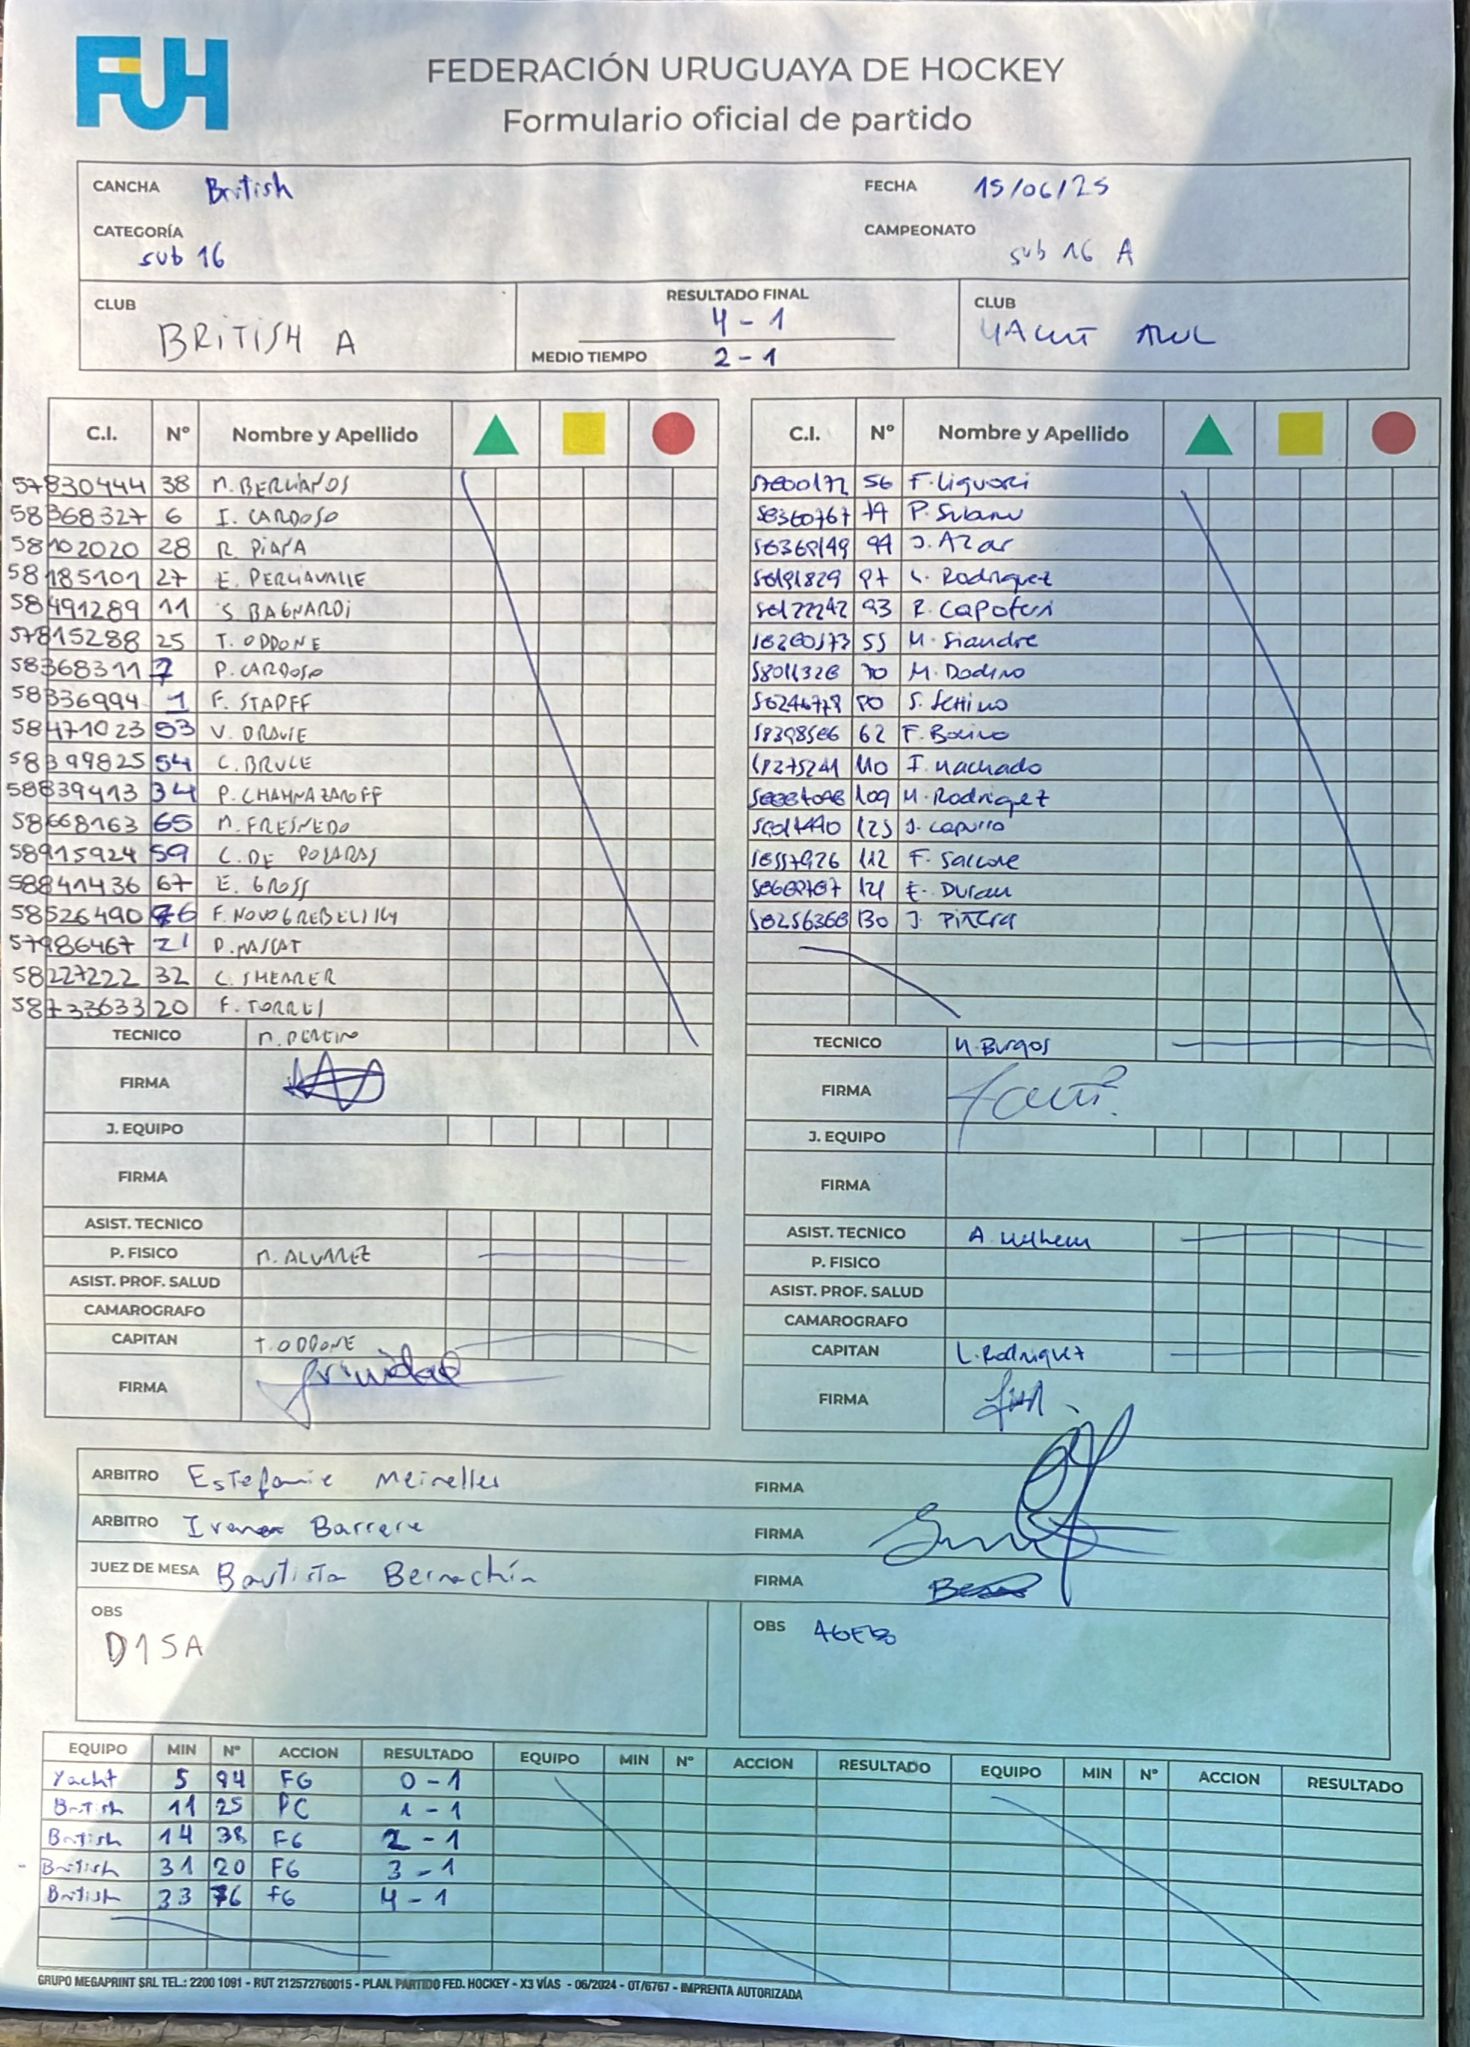 FUH
FEDERACIÓN URUGUAYA DE HOCKEY
Formulario oficial de partido
CANCHA British
FECHA 15/06/25
CATEGORÍA sub 16
CAMPEONATO sub 16 A
CLUB BRITISH A
RESULTADO FINAL 4-1
MEDIO TIEMPO 2-1
CLUB YACHT AZUL
C.I. Nº Nombre y Apellido
57830444 38 M. BERLIANOS
58368327 6 I. CARDOSO
58102020 28 R. PIAÑA
58185101 27 E. PERCIAVALLE
58491289 11 S. BAGNARDI
57815288 25 T. ODDONE
58368311 7 P. CARDOSO
58336994 1 F. STAPFF
58471023 53 V. DRAVIE
58399825 54 C. BRUCE
58839413 34 P. CHAHNAZAROFF
58668163 65 M. FRESNEDO
58915924 59 C. DE POSADAS
58841436 67 E. GROSS
58526490 76 F. NOVOGREBELSKY
57986467 21 P. MASCAT
58227222 32 C. SHEARER
58733633 20 F. TORRES
TECNICO M. PEREIRO
FIRMA
J. EQUIPO
FIRMA
ASIST. TECNICO
P. FISICO M. ALVAREZ
ASIST. PROF. SALUD
CAMAROGRAFO
CAPITAN T. ODDONE
FIRMA Trinidad
C.I. Nº Nombre y Apellido
57800172 56 F. Liguori
58360767 79 P. Subanu
58369149 94 J. Azar
97 L. Rodriguez
93 R. Capoferi
55 M. Siandre
58011328 70 M. Dodino
58246778 80 S. Settino
58398586 62 F. Borino
110 I. Machado
109 M. Rodriguez
125 J. Capurro
112 F. Saccone
121 E. Duran
58256368 130 J. Piñera
TECNICO M. Burgos
FIRMA
J. EQUIPO
FIRMA
ASIST. TECNICO A. Wilhem
P. FISICO
ASIST. PROF. SALUD
CAMAROGRAFO
CAPITAN L. Rodriguez
FIRMA
ARBITRO Estefanie Meirelles FIRMA
ARBITRO Ivanna Barrera FIRMA
JUEZ DE MESA Bautista Bernachín FIRMA
OBS D1SA
OBS AGEB
EQUIPO MIN Nº ACCION RESULTADO EQUIPO MIN Nº ACCION RESULTADO EQUIPO MIN Nº ACCION RESULTADO
Yacht 5 94 FG 0-1
British 11 25 PC 1-1
British 14 38 FG 2-1
British 31 20 FG 3-1
British 33 76 FG 4-1
GRUPO MEGAPRINT SRL TEL.: 2200 1091 - RUT 212572760015 - PLAN. PARTIDO FED. HOCKEY - X3 VÍAS - 06/2024 - OT/6767 - IMPRENTA AUTORIZADA